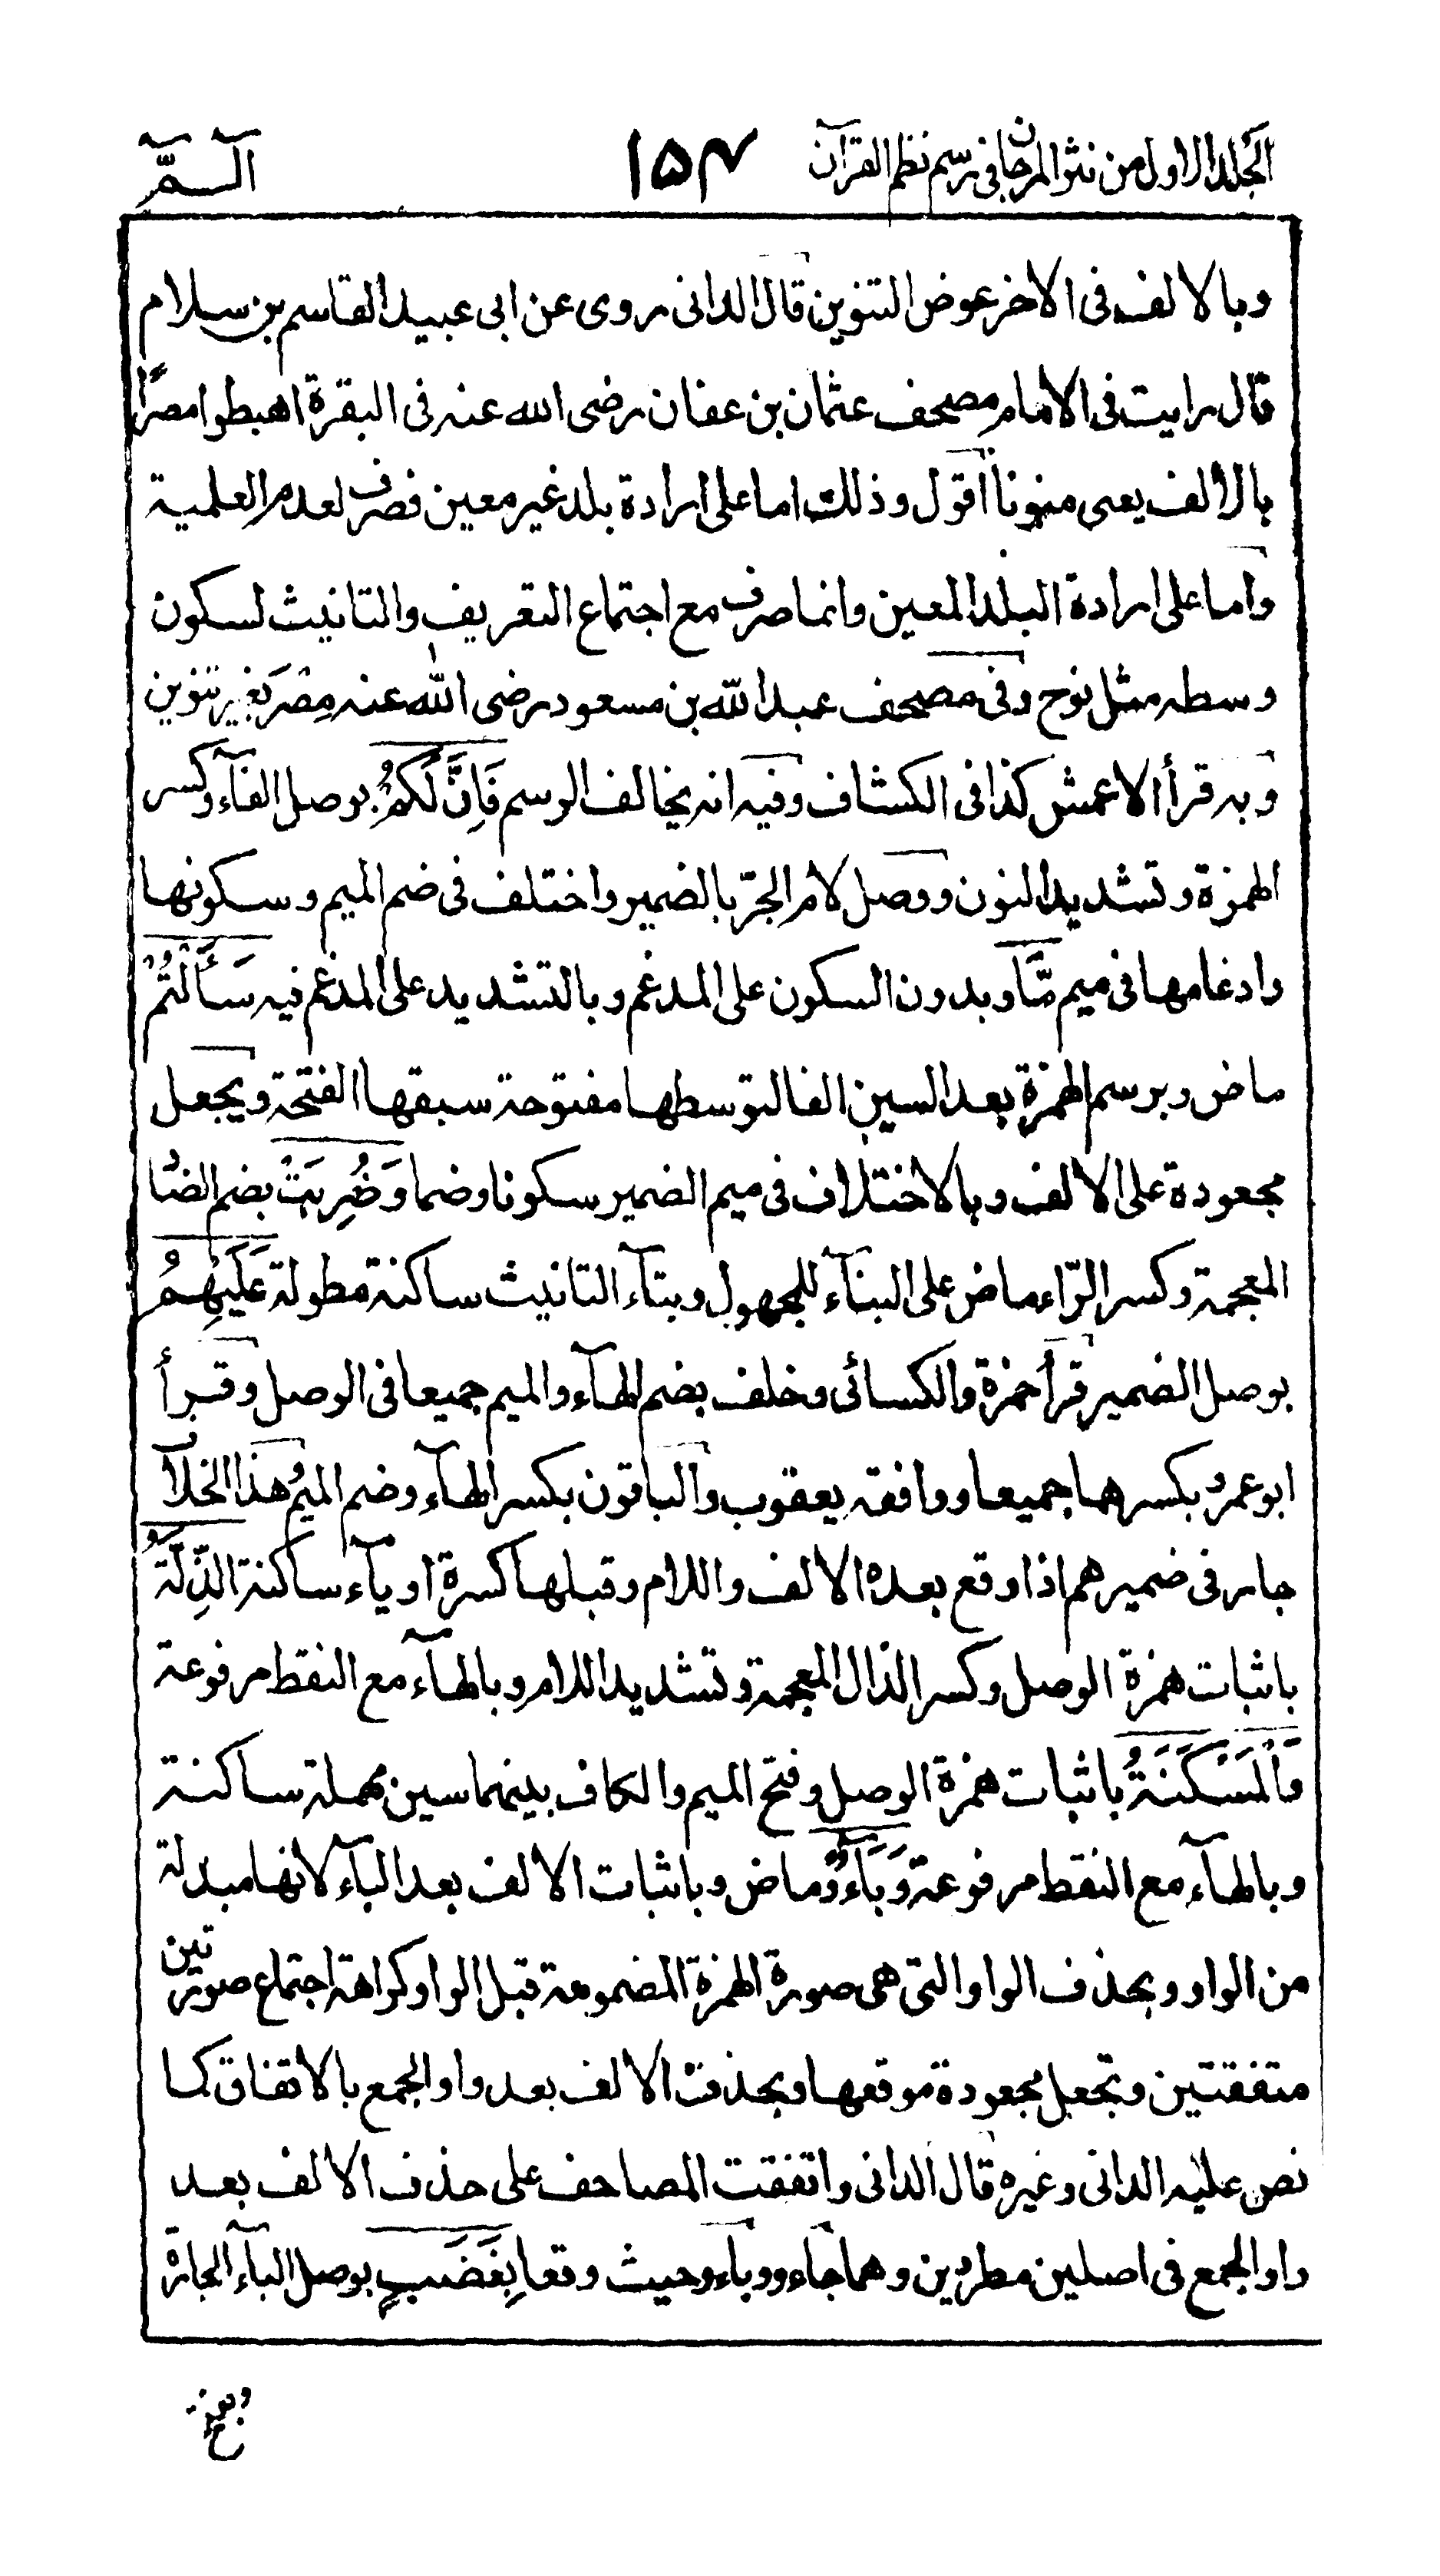 الجلد الاول من نثر المرجان فى رسم نظم القرآن ١٥٤ الٓـمّٓ
وبالالف فى الاخر عوض التنوين قال الدانى روى عن ابى عبيد القاسم بن سلام
قال رايت فى الامام مصحف عثمان بن عفان رضى الله عنه فى البقرة اهبطوا مصرًا
بالالف يعى منونا اقول وذلك اما على ارادة بلد غير معين فصرف لعدم العلمية
واما على ارادة البلد المعين وانما صرف مع اجتماع التعريف والتانيث لسكون
وسطه مثل نوح وفى مصحف عبد الله بن مسعود رضى الله عنه مِصْرَ بغير تنوين
وبه قرأ الاعمش كذا فى الكشاف وفيه انه يخالف الرسم فَاِنَّ لَكُمْ بوصل الفآء وكسر
الهمزة وتشديد النون ووصل لام الجرّ بالضمير واختلف فى ضم الميم وسكونها
وادغامها فى ميم مَّا وبدون السكون على المدغم وبالتشديد على المدغم فيه سَاَلْتُمْ
ماض وبرسم الهمزة بعد السين الفا لتوسطها مفتوحة سبقها الفتحة ويجعل
مجعودة على الالف وبالاختلاف فى ميم الضمير سكونا وضما وَضُرِبَتْ بضم الضا
المعجمة وكسر الرّاء ماض على البنآء للمجهول وبتآء التانيث ساكنة مطولة عَلَيْهِمُ
بوصل الضمير قرأ حمزة والكسائى وخلف بضم الهآء والميم جميعا فى الوصل وقرأ
ابو عمرو بكسرهما جميعا ووافقه يعقوب والباقون بكسر الهآء وضم الميم وهذا الخلاف
جار فى ضمير هم اذا وقع بعده الالف واللام وقبلها كسرة او يآء ساكنة الذِّلَّةُ
باثبات همزة الوصل وكسر الذال المعجمة وتشديد اللام وبالهآء مع النقط مرفوعة
وَالْمَسْكَنَةُ باثبات همزة الوصل وفتح الميم والكاف بينهما سين مهملة ساكنة
وبالهآء مع النقط مرفوعة وَبَآءُوْ ماض وباثبات الالف بعد البآء لانها مبدلة
من الواو وبحذف الواو التى هى صورة الهمزة المضمومة قبل الواو كراهة اجتماع صورتين
متفقتين وتجعل مجعودة موقعها وبحذف الالف بعد واو الجمع بالاتفاق كما
نص عليه الدانى وغيره قال الدانى واتفقت المصاحف على حذف الالف بعد
واو الجمع فى اصلين مطردين وهما جاءو وباءو حيث وقعا بِغَضَبٍ بوصل البآء الجارة